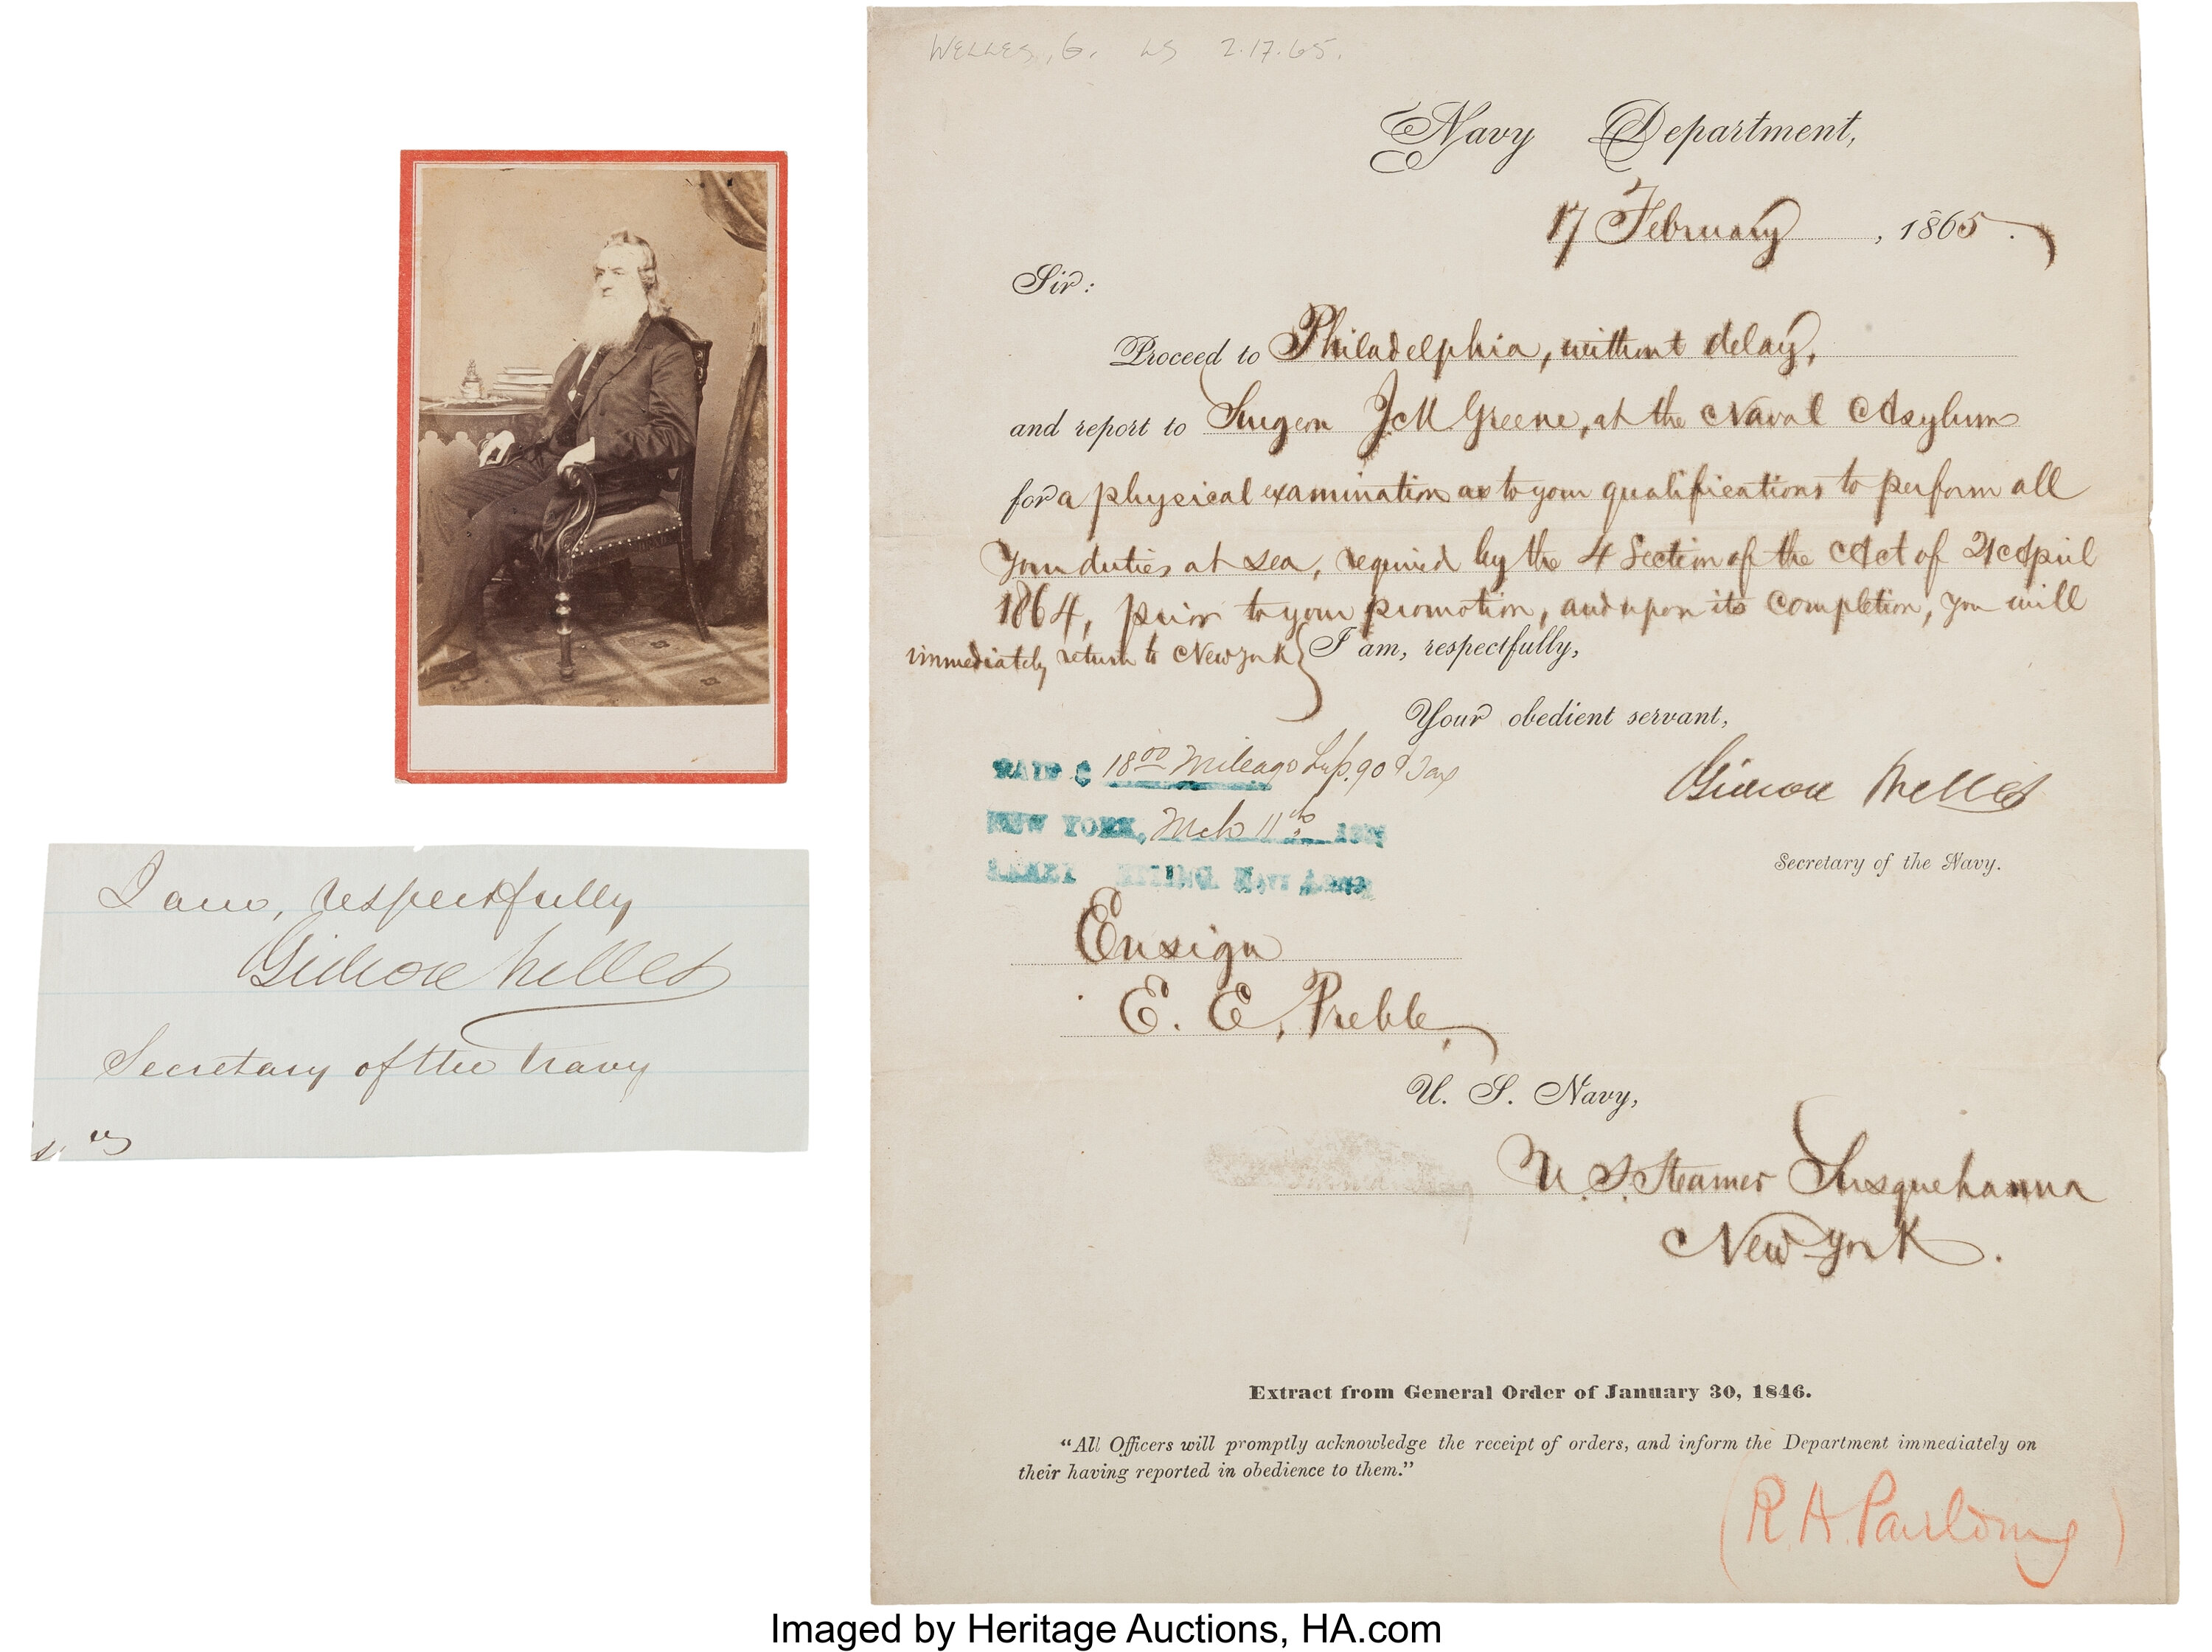 WELLES, G. LS 2.17.65.
Navy Department,
17 February, 1865.
Sir:
Proceed to Philadelphia, without delay,
and report to Surgeon J M Greene, at the Naval Asylum
for a physical examination as to your qualifications to perform all
your duties at sea, required by the 4 Section of the Act of 21 April
1864, prior to your promotion, and upon its completion, you will
immediately return to New York
I am, respectfully,
Your obedient servant,
Gideon Welles
Secretary of the Navy.
PAID $ 18 00 Mileage 90 Tax
NEW YORK, Mch 11th
Ensign
E. E. Preble
U. S. Navy,
U. S. Steamer Susquehanna
New York.
Extract from General Order of January 30, 1846.
“All Officers will promptly acknowledge the receipt of orders, and inform the Department immediately on
their having reported in obedience to them.”
(R. A. Paulding)
I am, respectfully
Gideon Welles
Secretary of the Navy
Imaged by Heritage Auctions, HA.com